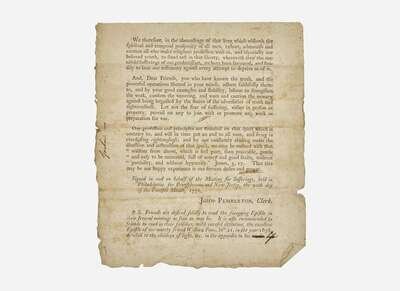 We therefore, in the aboundings of that love which wisheth the
spiritual and temporal prosperity of all men, exhort, admonish and
caution all who make religious profession with us, and especially our
beloved youth, to stand fast in that liberty, wherewith
sufferings of our predecessors, we have been favoured, and
to bear our testimony against every attempt to deprive us of it.
And, Dear Friends, you who have known the truth, and the
powerful operations thereof in your minds, adhere faithfully thereto,
and by your good examples and stability, labour to strengthen
the weak, confirm the wavering, and warn and caution the unwary
against being beguiled by the snares of the adversaries of truth and
righteousness. Let not the fear of suffering, either in person or
property, prevail on any to join with or promote any work or
preparation for war.
Our profession and principles are founded on that spirit which is
contrary to, and will in time put an end to all wars, and bring in
everlasting righteousness; and by our constantly abiding under the
direction and instruction of that spirit, we may be endued with that
" wisdom from above, which is first pure, then peaceable, gentle
" and easy to be entreated, full of mercy and good fruits, without
" partiality, and without hypocrisy." James, 3. 17. That this
may be our happy experience is our fervent desire and
Signed in and on behalf of the Meeting for Sufferings, held in
Philadelphia for Pennsylvania and New-Jersey, the day
of the Twelfth Month, 1776.
JOHN PEMBERTON, Clerk.
P. S. Friends are desired to read the foregoing Epistle in
their several meetings as soon as may be. It is also recommended to
friends to read in their families, with careful attention, the excellent
Epistle of our worthy friend William Penn, in the year
directed to the children of light, &c. in the appendix to his